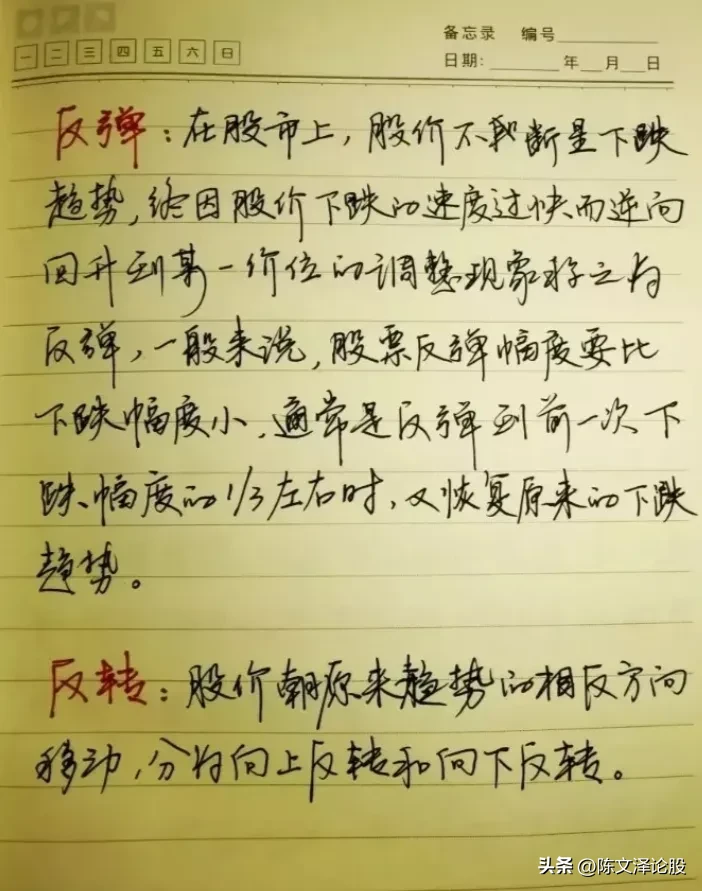 备忘录 编号
一 二 三 四 五 六 日
日期: 年 月 日
反弹：在股市上，股价不断呈下跌
趋势，终因股价下跌的速度过快而逆向
回升到某一价位的调整现象称之为
反弹，一般来说，股票反弹幅度要比
下跌幅度小，通常是反弹到前一次下
跌幅度的1/3左右时，又恢复原来的下跌
趋势。
反转：股价朝原来趋势的相反方向
移动，分为向上反转和向下反转。
头条 @陈文泽论股